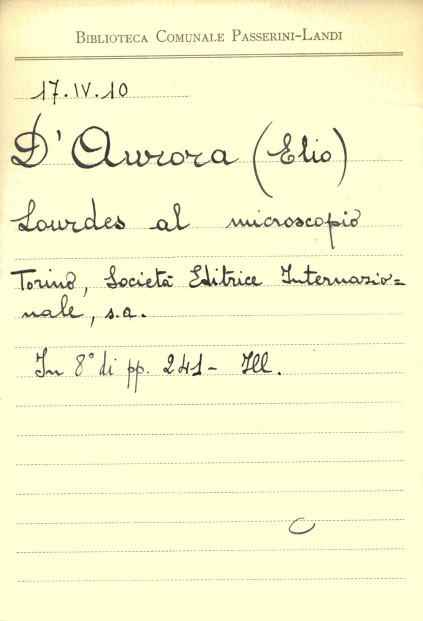 BIBLIOTECA COMUNALE PASSERINI-LANDI
17.IV.10
D'Aurora (Elio)
Lourdes al microscopio
Torino, Società Editrice Internazio=
nale, s.a.
In 8° di pp. 241 - Ill.
C